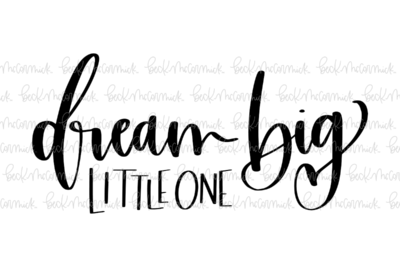 dream big
LITTLE ONE